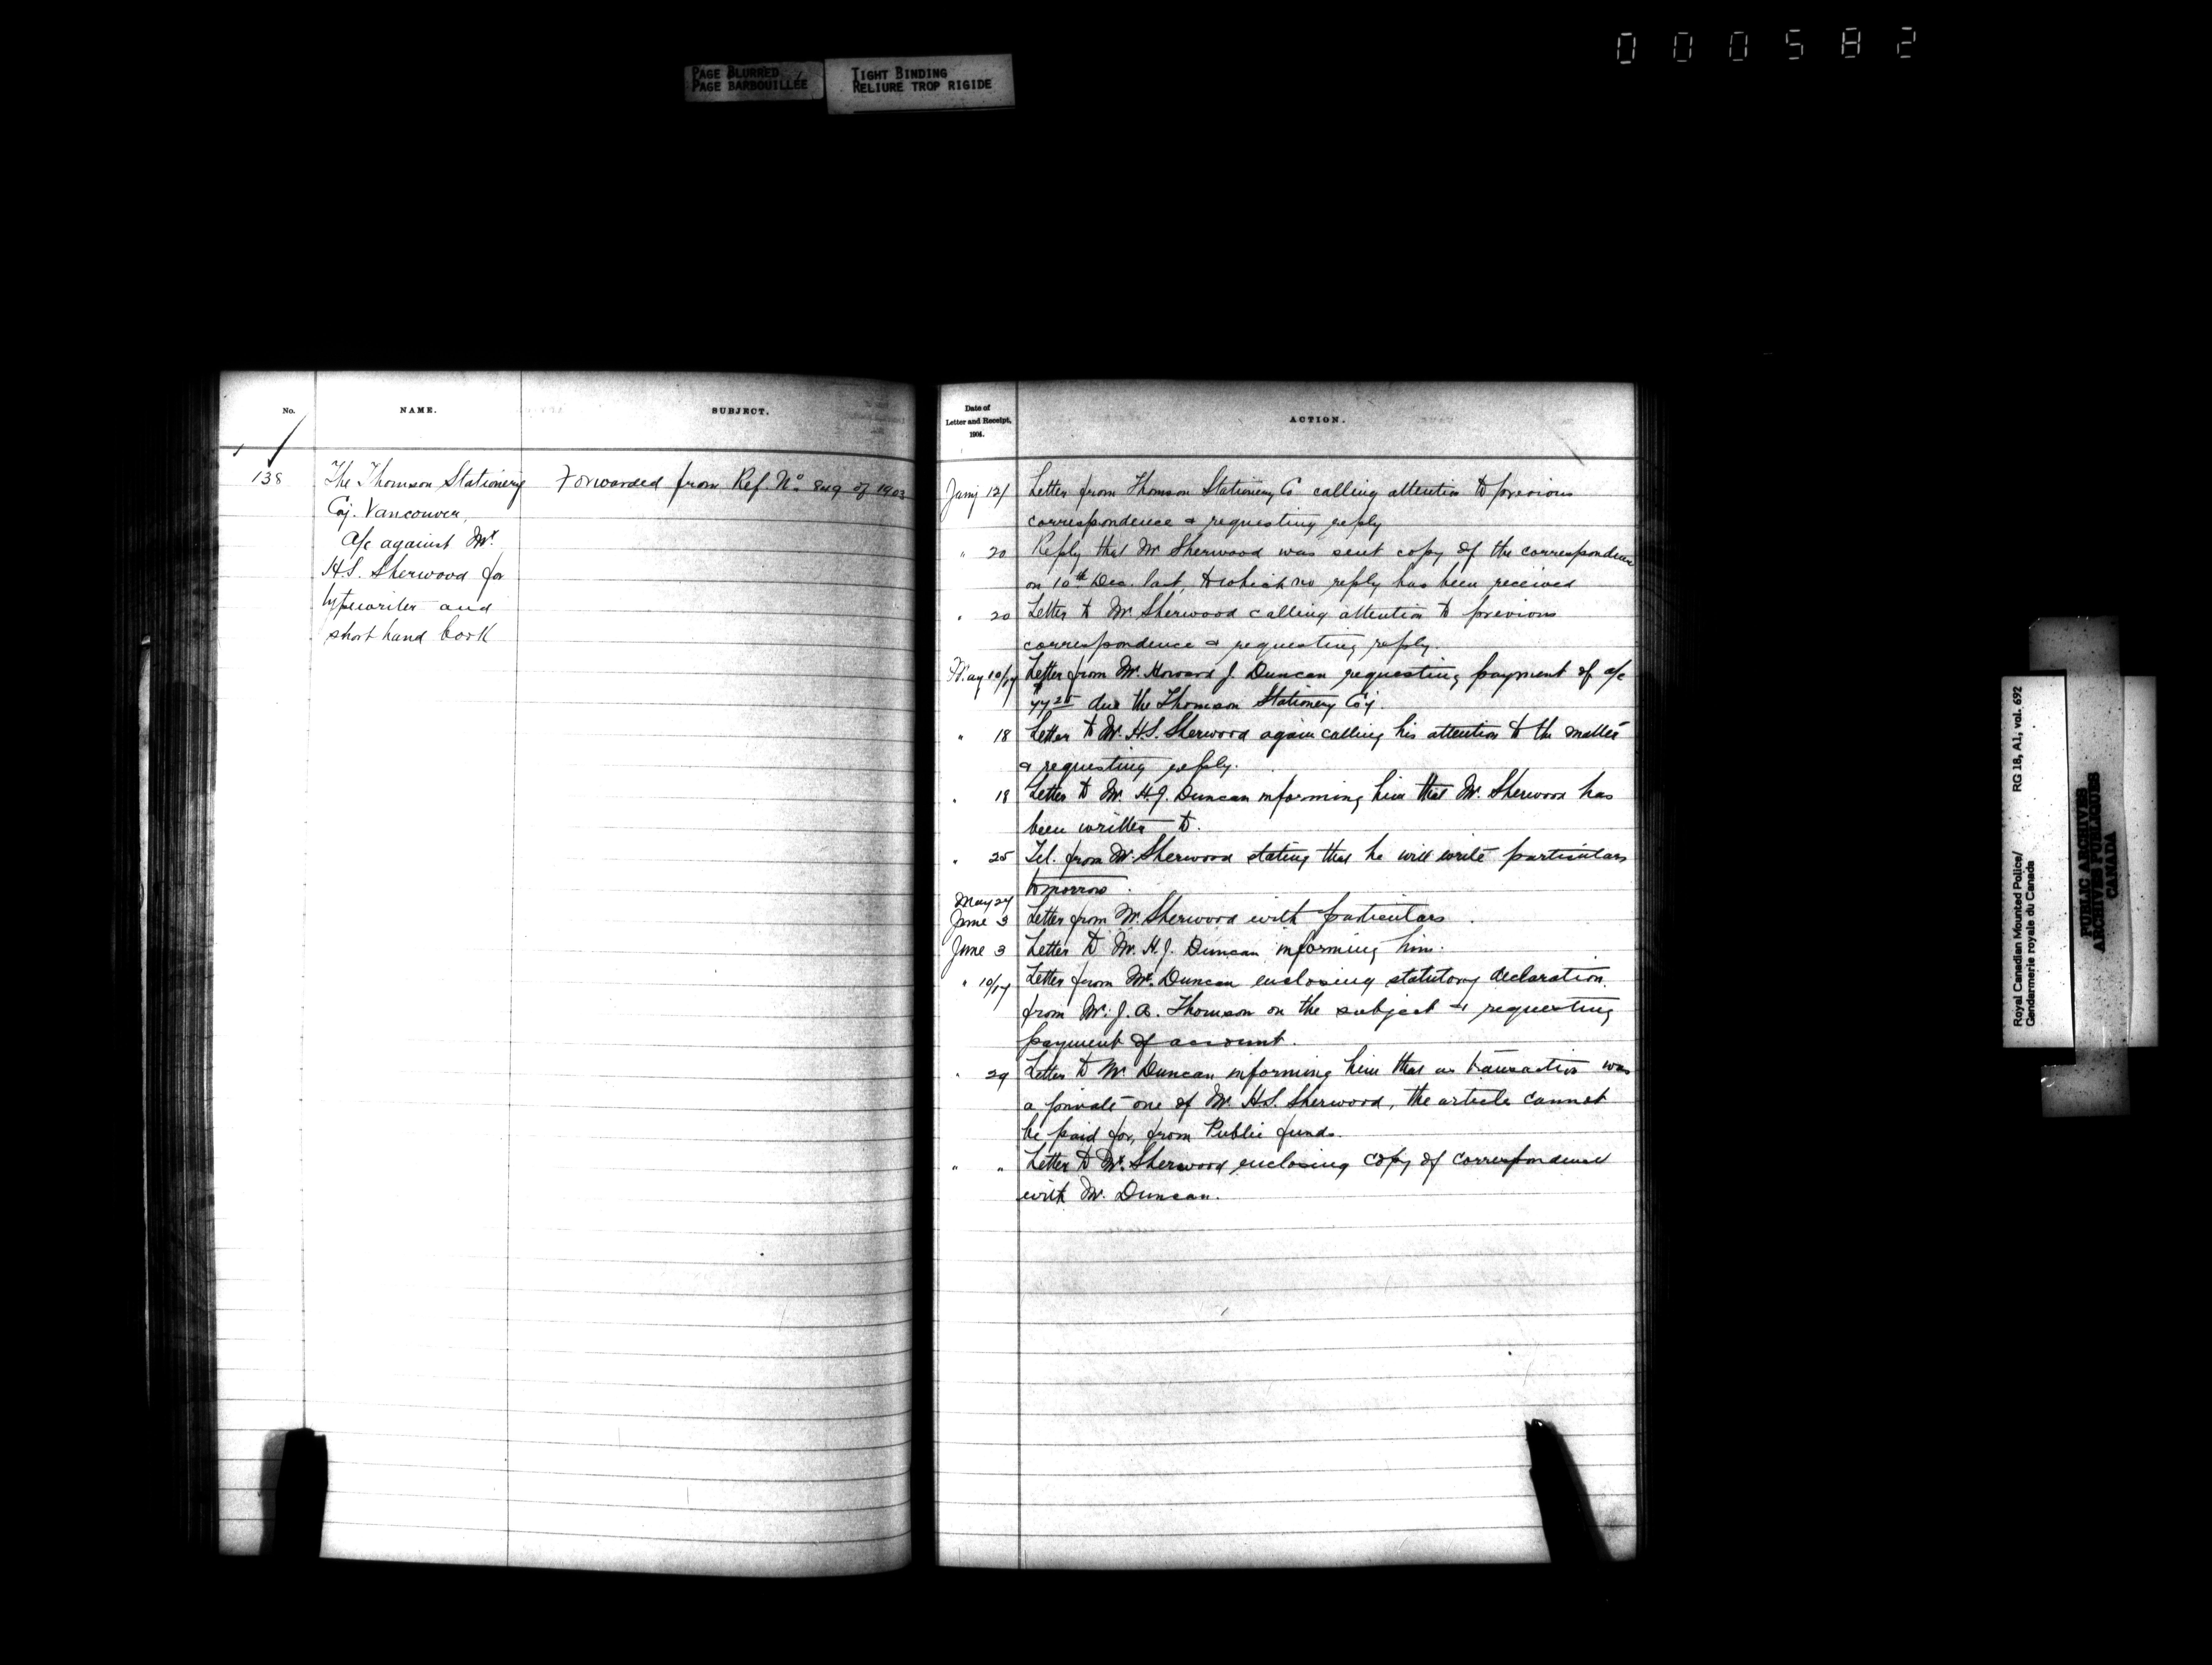 000582
PAGE BLURRED
PAGE BARBOUILLÉE
TIGHT BINDING
RELIURE TROP RIGIDE
No.
NAME.
SUBJECT.
138
The Thomson Stationery
Coy. Vancouver,
A/c against Mr.
H.S. Sherwood for
typewriter and
short hand book
Forwarded from Ref. No. 849 of 1903
Date of
Letter and Receipt,
1904.
ACTION.
Jany 12/ Letter from Thomson Stationery Co calling attention to previous
correspondence & requesting reply
" 20 Reply that Mr Sherwood was sent copy of the correspondence
on 10th Dec. last, to which no reply has been received
" 20 Letter to Mr Sherwood calling attention to previous
correspondence & requesting reply.
May 10/17 Letter from Mr. Howard J. Duncan requesting payment of a/c
due the Thomson Stationery Co'y.
" 18 Letter to Mr. H.S. Sherwood again calling his attention to the matter
& requesting reply.
" 18 Letter to Mr. H.J. Duncan informing him that Mr. Sherwood has
been written to.
" 25 Tel. from Mr. Sherwood stating that he will write particulars
tomorrow.
May 27
June 3 Letter from Mr. Sherwood with particulars.
June 3 Letter to Mr. H.J. Duncan informing him.
" 10/17 Letter from Mr. Duncan enclosing statutory declaration
from Mr. J. A. Thomson on the subject & requesting
payment of account.
" 29 Letter to Mr Duncan informing him that as transaction was
a private one of Mr. H.S. Sherwood, the article cannot
be paid for, from Public funds.
" " Letter to Mr. Sherwood enclosing copy of correspondence
with Mr. Duncan.
Royal Canadian Mounted Police/ RG 18, A1, vol. 692
Gendarmerie royale du Canada
PUBLIC ARCHIVES
ARCHIVES PUBLIQUES
CANADA